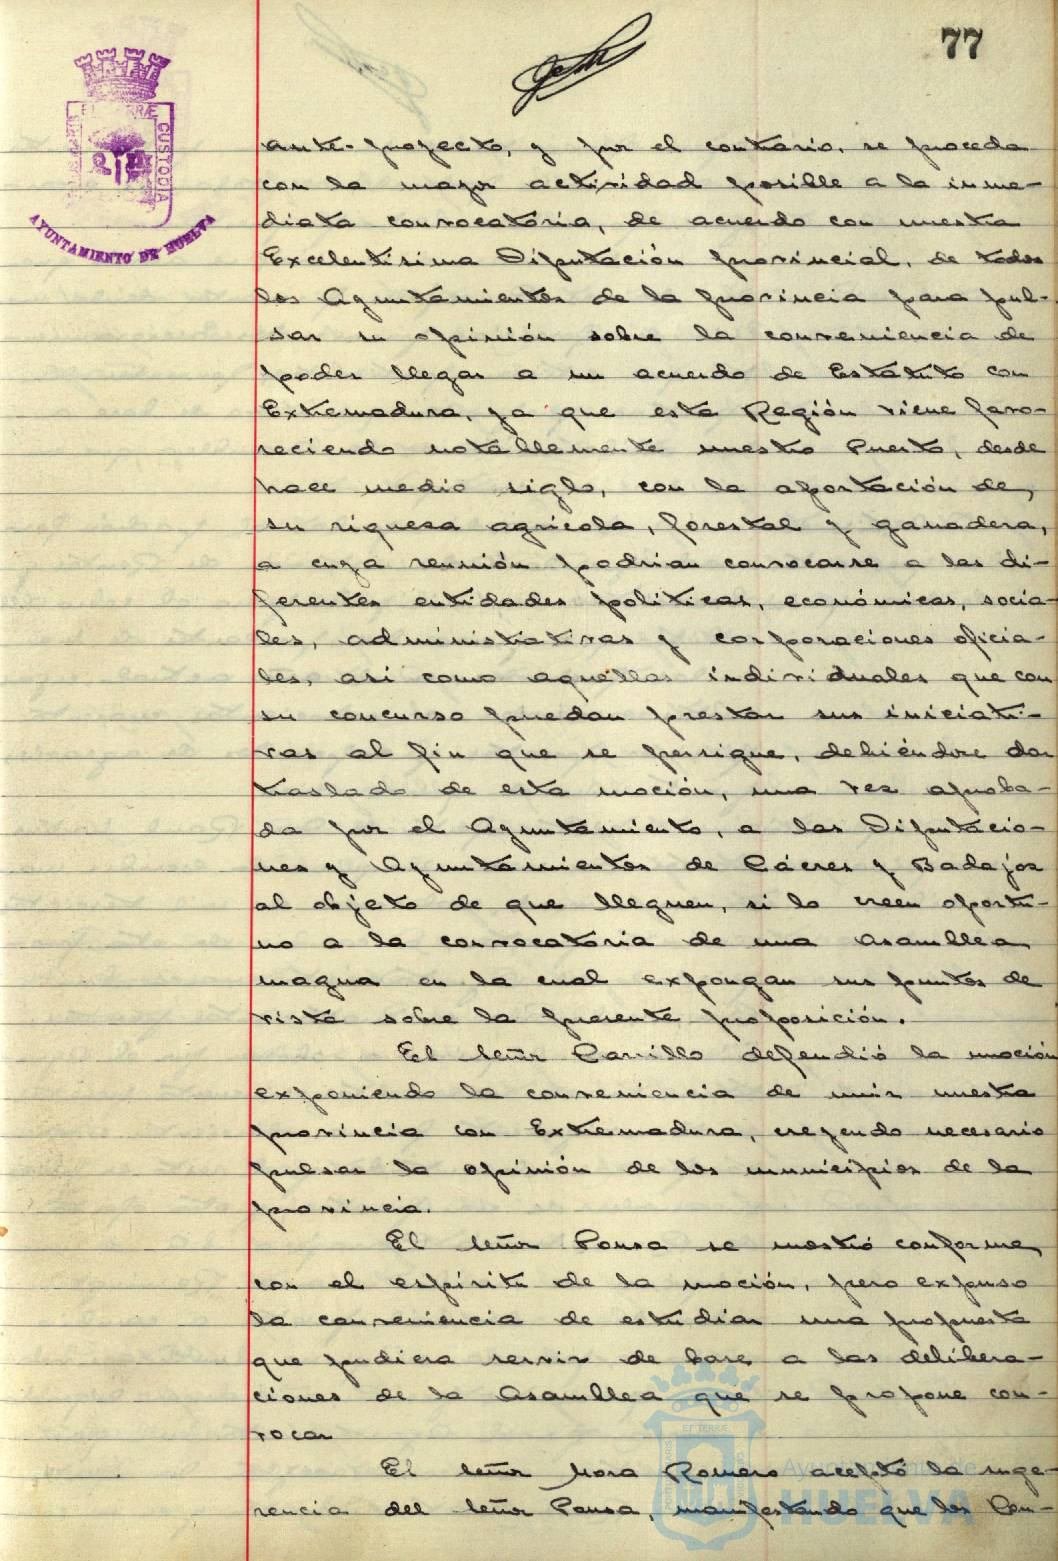 77
ante-proyecto, y por el contrario, se proceda
con la mayor actividad posible a la inme-
diata convocatoria, de acuerdo con nuestra
Excelentísima Diputación provincial, de todos
los Ayuntamientos de la provincia para pul-
sar su opinión sobre la conveniencia de
poder llegar a un acuerdo de Estatuto con
Extremadura, ya que esta Región viene favo-
reciendo notablemente nuestro Puerto, desde
hace medio siglo, con la aportación de
su riquesa agrícola, forestal y ganadera,
a cuya reunión podrían convocarse a las di-
ferentes entidades políticas, económicas, socia-
les, administrativas y corporaciones oficia-
les, asi como aquellas individuales que con
su concurso puedan prestar sus iniciati-
vas al fin que se persigue, debiéndose dar
traslado de esta moción, una vez aproba-
da por el Ayuntamiento, a las Diputacio-
nes y Ayuntamientos de Cáceres y Badajoz
al objeto de que lleguen, si lo creen oportu-
no a la convocatoria de una asamblea
magna en la cual expongan sus puntos de
vista sobre la presente proposición.
El señor Carrillo defendió la moción
exponiendo la conveniencia de unir nuestra
provincia con Extremadura, creyendo necesario
pulsar la opinión de los municipios de la
provincia.
El señor Ponsa se mostró conforme
con el espíritu de la moción, pero expuso
la conveniencia de estudiar una propuesta
que pudiera servir de base a las delibera-
ciones de la Asamblea que se propone con-
vocar
El señor Mora Romero aceptó la suge-
rencia del señor Ponsa, manifestando que los Cen-
CUSTODIA
AYUNTAMIENTO DE HUELVA
Ayuntamiento de
HUELVA